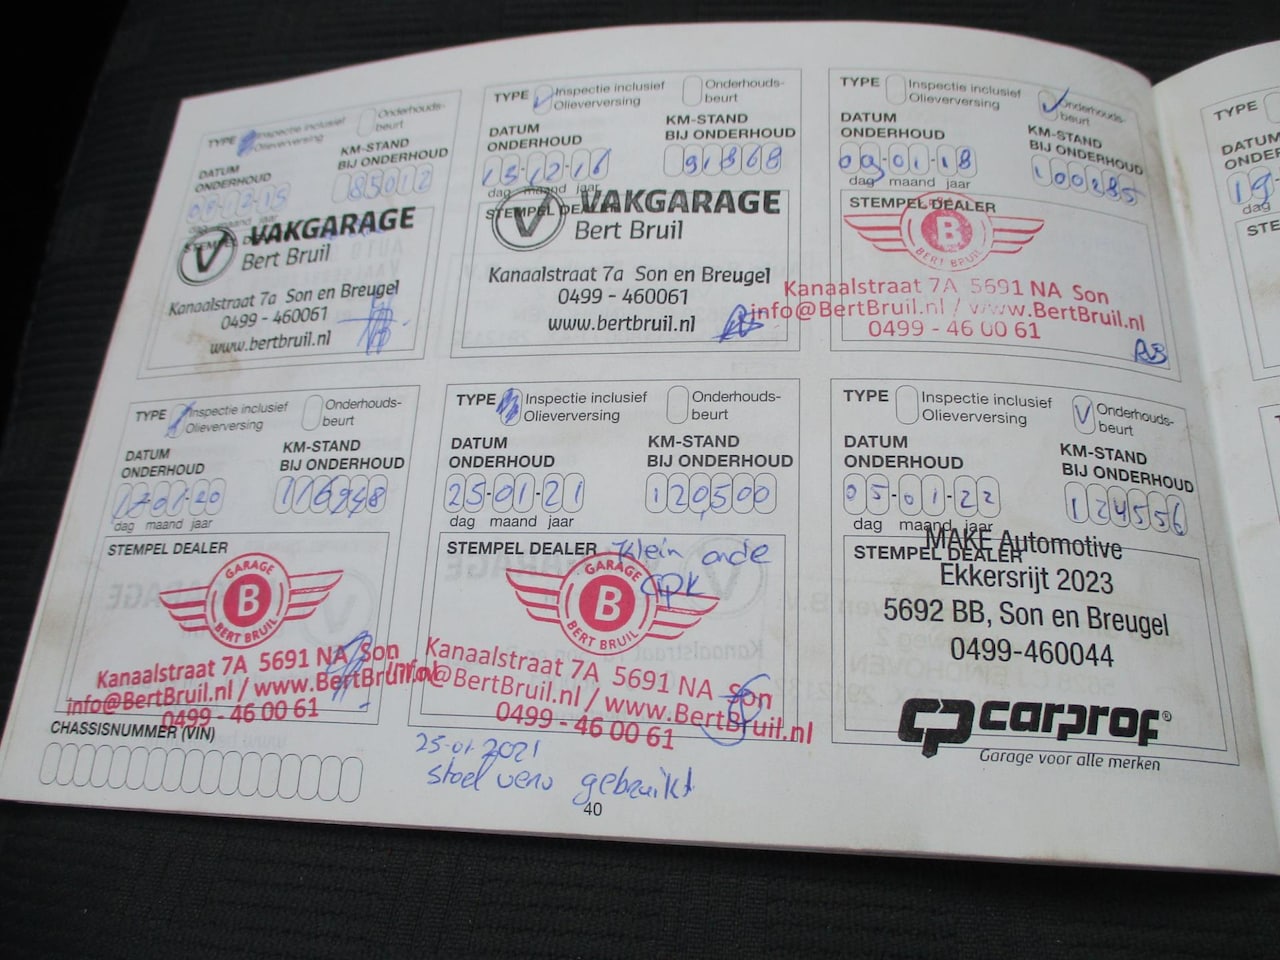 TYPE Inspectie inclusief Olieverversing Onderhouds-beurt
DATUM ONDERHOUD
KM-STAND BIJ ONDERHOUD
85012
dag maand jaar
STEMPEL DEALER
VAKGARAGE
Bert Bruil
Kanaalstraat 7a Son en Breugel
0499 - 460061
www.bertbruil.nl
TYPE Inspectie inclusief Olieverversing Onderhouds-beurt
DATUM ONDERHOUD
KM-STAND BIJ ONDERHOUD
15-12-16
91868
dag maand jaar
STEMPEL DEALER
VAKGARAGE
Bert Bruil
Kanaalstraat 7a Son en Breugel
0499 - 460061
www.bertbruil.nl
TYPE Inspectie inclusief Olieverversing Onderhouds-beurt
DATUM ONDERHOUD
KM-STAND BIJ ONDERHOUD
09-01-18
100285
dag maand jaar
STEMPEL DEALER
B
BERT BRUIL
Kanaalstraat 7A 5691 NA Son
info@BertBruil.nl / www.BertBruil.nl
0499 - 46 00 61
RB
TYPE Inspectie inclusief Olieverversing Onderhouds-beurt
DATUM ONDERHOUD
KM-STAND BIJ ONDERHOUD
17-01-20
116948
dag maand jaar
STEMPEL DEALER
GARAGE
B
BERT BRUIL
Kanaalstraat 7A 5691 NA Son
info@BertBruil.nl / www.BertBruil.nl
0499 - 46 00 61
CHASSISNUMMER (VIN)
TYPE Inspectie inclusief Olieverversing Onderhouds-beurt
DATUM ONDERHOUD
KM-STAND BIJ ONDERHOUD
25-01-21
120500
dag maand jaar
STEMPEL DEALER Klein onde
APK
GARAGE
B
BERT BRUIL
Kanaalstraat 7A 5691 NA Son
info@BertBruil.nl / www.BertBruil.nl
0499 - 46 00 61
25-01-2021
stoel verw gebruikt
TYPE Inspectie inclusief Olieverversing Onderhouds-beurt
DATUM ONDERHOUD
KM-STAND BIJ ONDERHOUD
05-01-22
124556
dag maand jaar
STEMPEL DEALER
MAKE Automotive
Ekkersrijt 2023
5692 BB, Son en Breugel
0499-460044
carprof®
Garage voor alle merken
40
TYPE
19
dag